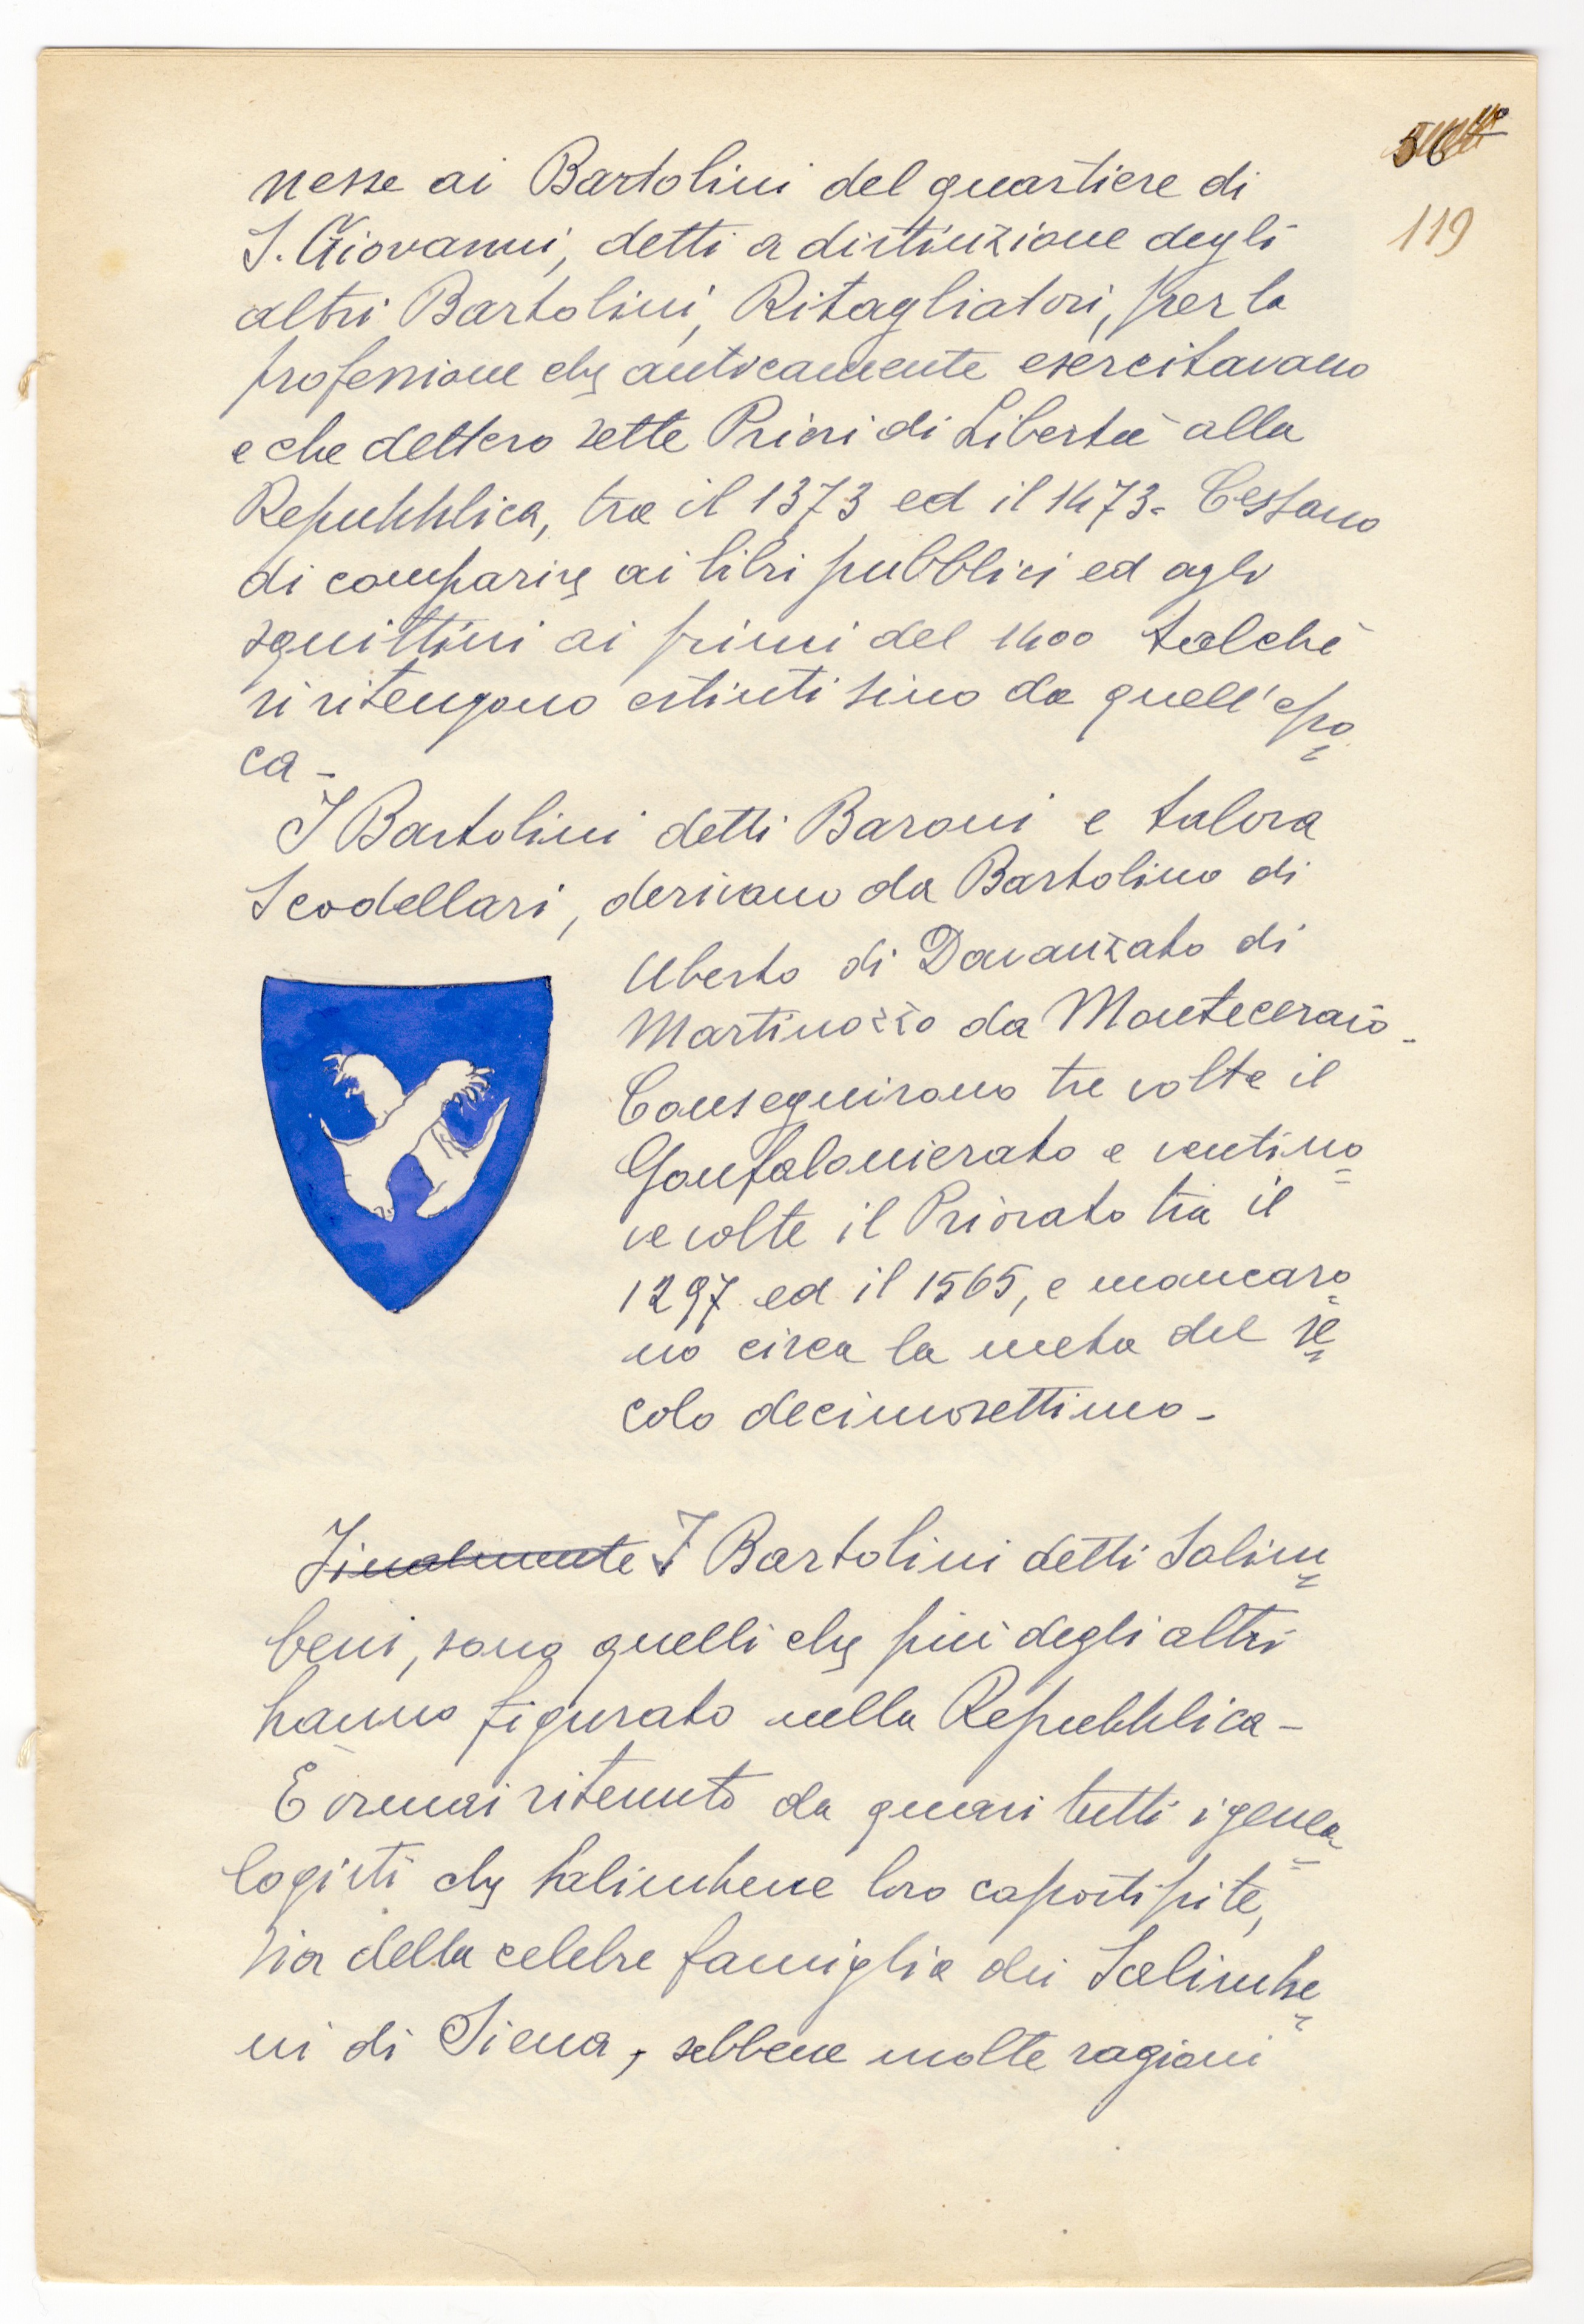 119
nesse ai Bartolini del quartiere di
S. Giovanni, detti a distinzione degli
altri Bartolini, Ritagliatori, per la
professione che anticamente esercitavano
e che dettero sette Priori di Libertà alla
Repubblica, tra il 1373 ed il 1473. Cessano
di comparire ai libri pubblici ed agli
squittini ai primi del 1400 talchè
si ritengono estinti sino da quell'epo
ca -
I Bartolini detti Baroni e talora
Scodellari, derivano da Bartolino di
Uberto di Davanzato di
Martinozzo da Monteceraio -
Conseguirono tre volte il
Gonfalonierato e ventino
ve volte il Priorato tra il
1297 ed il 1565, e mancaro
no circa la metà del se
colo decimosettimo -
Finalmente I Bartolini detti Salim
beni, sono quelli che più degli altri
hanno figurato nella Repubblica -
È ormai ritenuto da quasi tutti i genea
logisti che Salimbene loro capostipite,
sia della celebre famiglia dei Salimbe
ni di Siena, sebbene molte ragioni